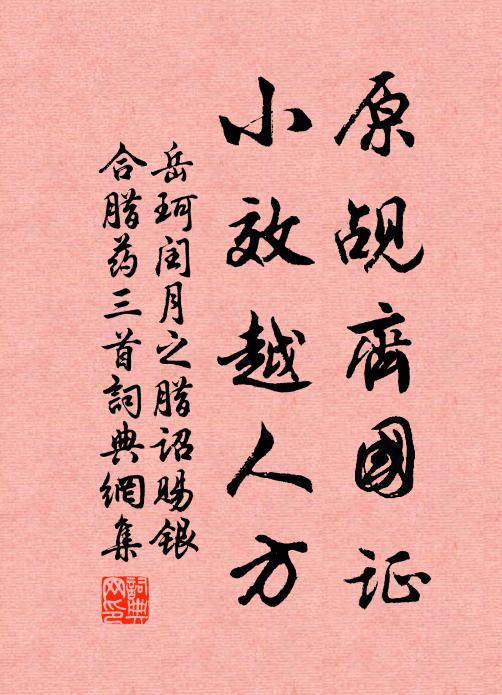 原觇齊國证
小效越人方
岳珂闰月之腊诏赐银
合腊药三首詞典網集
詞典網印